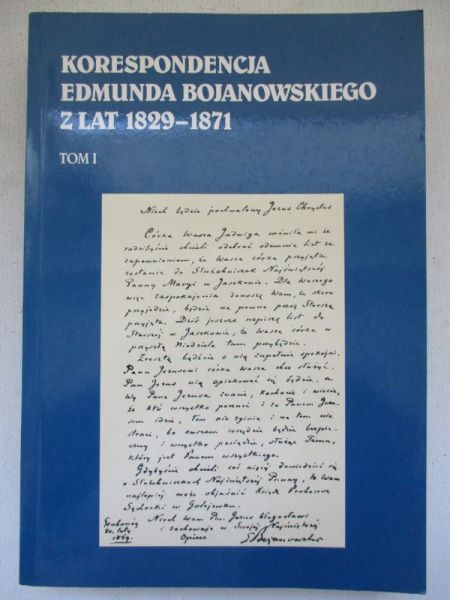 KORESPONDENCJA
EDMUNDA BOJANOWSKIEGO
Z LAT 1829–1871
TOM I
Niech będzie pochwalony Jezus Chrystus
Córka Wasza Jadwiga mówiła mi że
radzibyście chcieli odebrać odemnie list ze
zapewnieniem, że Wasza córka przyjęta
zostanie do Służebniczek Najświętszej
Panny Maryi w Jaszkowie. Dla waszego
więc zaspokojenia donoszę Wam, że skoro
przyjedzie, będzie na pewne przez Starszą
przyjęta. Dziś jeszcze napiszę list do
Starszej w Jaszkowie, że Wasza córka w
przyszłą Niedzielę tam przybędzie.
Zresztą bądźcie o nią zupełnie spokojni.
Panu Jezusowi córka wasza chce służyć.
Pan Jezus nią opiekować się będzie, a
Wy Pana Jezusa znacie, kochacie i wiecie,
że kto wszystko porzuci i za Panem Jezu-
sem idzie, ten nie zginie i na tem nie
straci, bo owszem wszędzie będzie bezpie-
czny i wszystko posiędzie, służąc Temu,
który jest Panem wszystkiego.
Gdybyście chcieli coś więcej dowiedzieć się
o Służebniczkach Najświętszej Panny, to Wam
najlepiej może objaśnić Ksiądz Proboszcz
w Golejewku.
Niech Wam Pan Jezus błogosławi
i zachowuje w Swojej i Najświętszej
Opiece
Grabonóg
20. lutego
1869.
EBojanowski